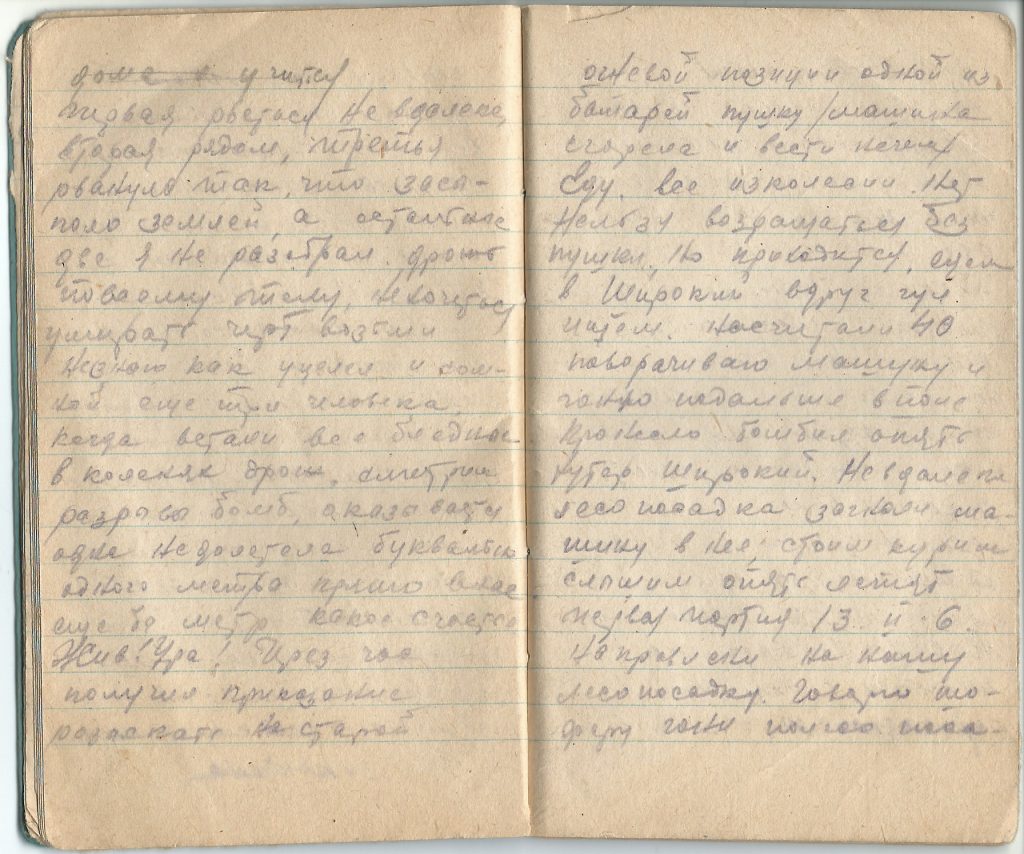 дома и учится
первая рветься не вдалеке,
вторая рядом, третья
рванула так, что засы-
пало землей, а остальные
две я не разобрал. дрожь
по всему телу, не хочеться
умирать черт возьми
незнаю как уцелел и со мн-
ной еще три человека.
когда встали все бледные
в коленях дрож, смотрим
разрывы бомб, оказывается
одна недолетела буквально
одного метра прямо в нас
еще бы метр какое счастье
Жив! Ура! Через час
получил приказание
разыскать на старой
огневой позиции одной из
батарей пушку /машина
сгорела и вести нечем/
Еду, все изколесил. Нет
Нельзя возвращаться без
пушки, но приходится, едем
в Широкий вдруг гул
насчитали 40
поворачиваю машину и
гоню подальше в поле
пронесло бомбил опять
хутор Широкий. Невдалеке
лесопосадка загнали ма-
шину в нее, стоим курим
слышим опять летят
первая партия 13 и 6.
направленик на нашу
лесопосадку. Говорю шо-
феру гони полево